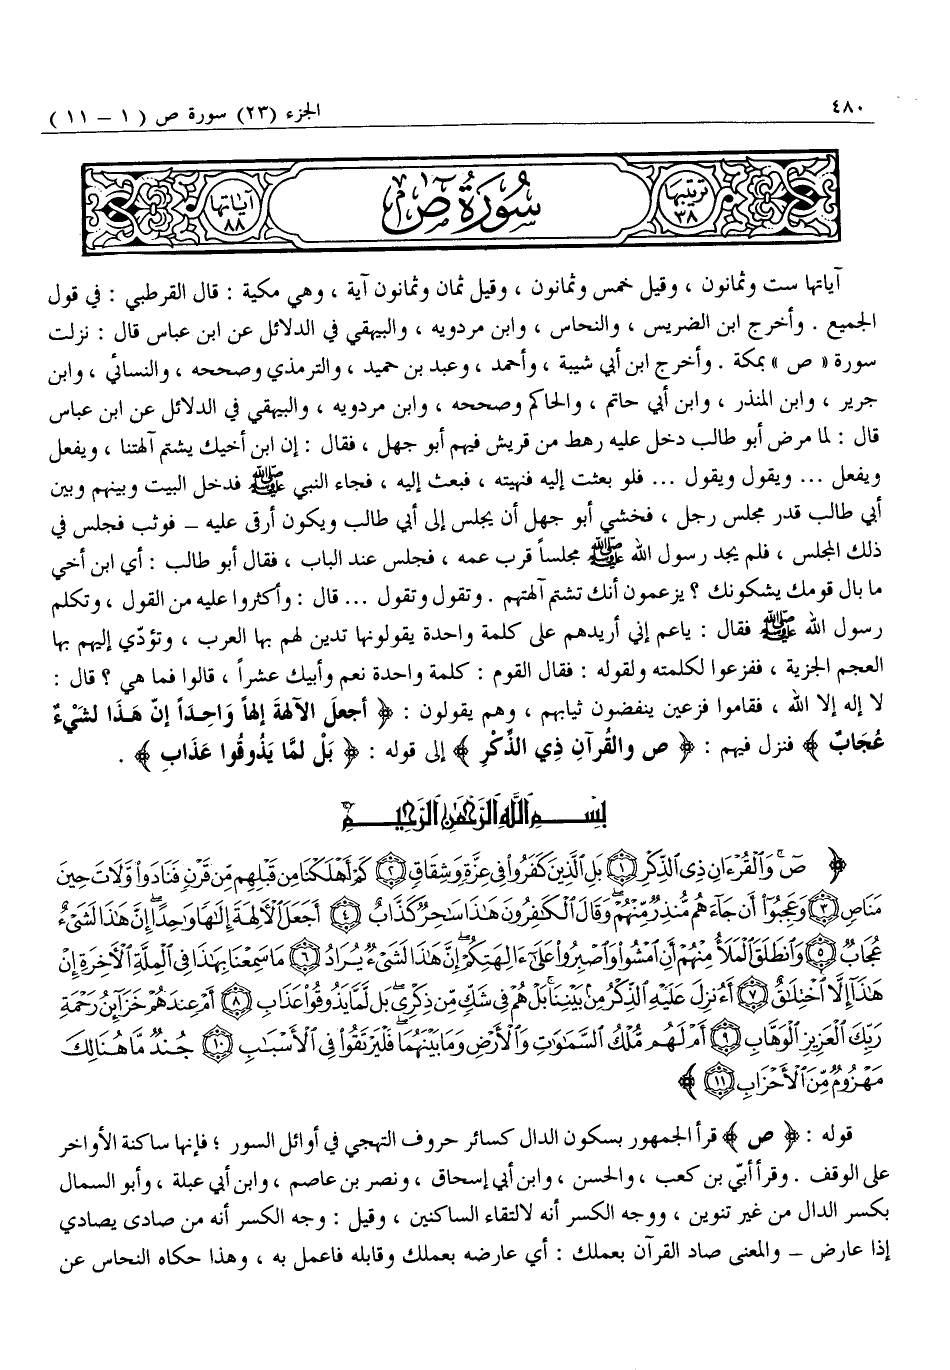 ٤٨٠
الجزء (٢٣) سورة ص ( ١ – ١١ )
ترتيبها ٣٨
سورة ص
آياتها ٨٨
آياتها ست وثمانون ، وقيل خمس وثمانون ، وقيل ثمان وثمانون آية ، وهي مكية : قال القرطبي : في قول
الجميع . وأخرج ابن الضريس ، والنحاس ، وابن مردويه ، والبيهقي في الدلائل عن ابن عباس قال : نزلت
سورة « ص » بمكة . وأخرج ابن أبي شيبة ، وأحمد ، وعبد بن حميد ، والترمذي وصححه ، والنسائي ، وابن
جرير ، وابن المنذر ، وابن أبي حاتم ، والحاكم وصححه ، وابن مردويه ، والبيهقي في الدلائل عن ابن عباس
قال : لما مرض أبو طالب دخل عليه رهط من قريش فيهم أبو جهل ، فقال : إن ابن أخيك يشتم آلهتنا ، ويفعل
ويفعل ... ويقول ويقول ... فلو بعثت إليه فنهيته ، فبعث إليه ، فجاء النبي ﷺ فدخل البيت وبينهم وبين
أبي طالب قدر مجلس رجل ، فخشي أبو جهل أن يجلس إلى أبي طالب ويكون أرقى عليه – فوثب فجلس في
ذلك المجلس ، فلم يجد رسول الله ﷺ مجلساً قرب عمه ، فجلس عند الباب ، فقال أبو طالب : أي ابن أخي
ما بال قومك يشكونك ؟ يزعمون أنك تشتم آلهتهم . وتقول وتقول ... قال : وأكثروا عليه من القول ، وتكلم
رسول الله ﷺ فقال : ياعم إني أريدهم على كلمة واحدة يقولونها تدين لهم بها العرب ، وتؤدّي إليهم بها
العجم الجزية ، ففزعوا لكلمته ولقوله : فقال القوم : كلمة واحدة نعم وأبيك عشراً ، قالوا فما هي ؟ قال :
لا إله إلا الله ، فقاموا فزعين ينفضون ثيابهم ، وهم يقولون : ﴿ أجعلَ الآلهةَ إلهاً وَاحِداً إنّ هَذَا لشَيْءٌ
عُجَابٌ ﴾ فنزل فيهم : ﴿ ص والقُرآنِ ذِي الذِّكْرِ ﴾ إلى قوله : ﴿ بَلْ لمَّا يَذُوقُوا عَذَابِ ﴾ .
بِسْمِ ٱللَّهِ ٱلرَّحْمَٰنِ ٱلرَّحِيمِ
﴿ صٓ ۚ وَٱلْقُرْءَانِ ذِى ٱلذِّكْرِ ۝١ بَلِ ٱلَّذِينَ كَفَرُوا۟ فِى عِزَّةٍ وَشِقَاقٍ ۝٢ كَمْ أَهْلَكْنَا مِن قَبْلِهِم مِّن قَرْنٍ فَنَادَوا۟ وَّلَاتَ حِينَ
مَنَاصٍ ۝٣ وَعَجِبُوٓا۟ أَن جَآءَهُم مُّنذِرٌ مِّنْهُمْ ۖ وَقَالَ ٱلْكَٰفِرُونَ هَٰذَا سَٰحِرٌ كَذَّابٌ ۝٤ أَجَعَلَ ٱلْءَالِهَةَ إِلَٰهًا وَٰحِدًا ۖ إِنَّ هَٰذَا لَشَىْءٌ
عُجَابٌ ۝٥ وَٱنطَلَقَ ٱلْمَلَأُ مِنْهُمْ أَنِ ٱمْشُوا۟ وَٱصْبِرُوا۟ عَلَىٰٓ ءَالِهَتِكُمْ ۖ إِنَّ هَٰذَا لَشَىْءٌ يُرَادُ ۝٦ مَا سَمِعْنَا بِهَٰذَا فِى ٱلْمِلَّةِ ٱلْءَاخِرَةِ إِنْ
هَٰذَآ إِلَّا ٱخْتِلَٰقٌ ۝٧ أَءُنزِلَ عَلَيْهِ ٱلذِّكْرُ مِنۢ بَيْنِنَا ۚ بَلْ هُمْ فِى شَكٍّ مِّن ذِكْرِى ۖ بَل لَّمَّا يَذُوقُوا۟ عَذَابِ ۝٨ أَمْ عِندَهُمْ خَزَآئِنُ رَحْمَةِ
رَبِّكَ ٱلْعَزِيزِ ٱلْوَهَّابِ ۝٩ أَمْ لَهُم مُّلْكُ ٱلسَّمَٰوَٰتِ وَٱلْأَرْضِ وَمَا بَيْنَهُمَا ۖ فَلْيَرْتَقُوا۟ فِى ٱلْأَسْبَٰبِ ۝١٠ جُندٌ مَّا هُنَالِكَ
مَهْزُومٌ مِّنَ ٱلْأَحْزَابِ ۝١١ ﴾
قوله : ﴿ ص ﴾ قرأ الجمهور بسكون الدال كسائر حروف التهجي في أوائل السور ؛ فإنها ساكنة الأواخر
على الوقف . وقرأ أبيّ بن كعب ، والحسن ، وابن أبي إسحاق ، ونصر بن عاصم ، وابن أبي عبلة ، وأبو السمال
بكسر الدال من غير تنوين ، ووجه الكسر أنه لالتقاء الساكنين ، وقيل : وجه الكسر أنه من صادى يصادي
إذا عارض – والمعنى صاد القرآن بعملك : أي عارضه بعملك وقابله فاعمل به ، وهذا حكاه النحاس عن